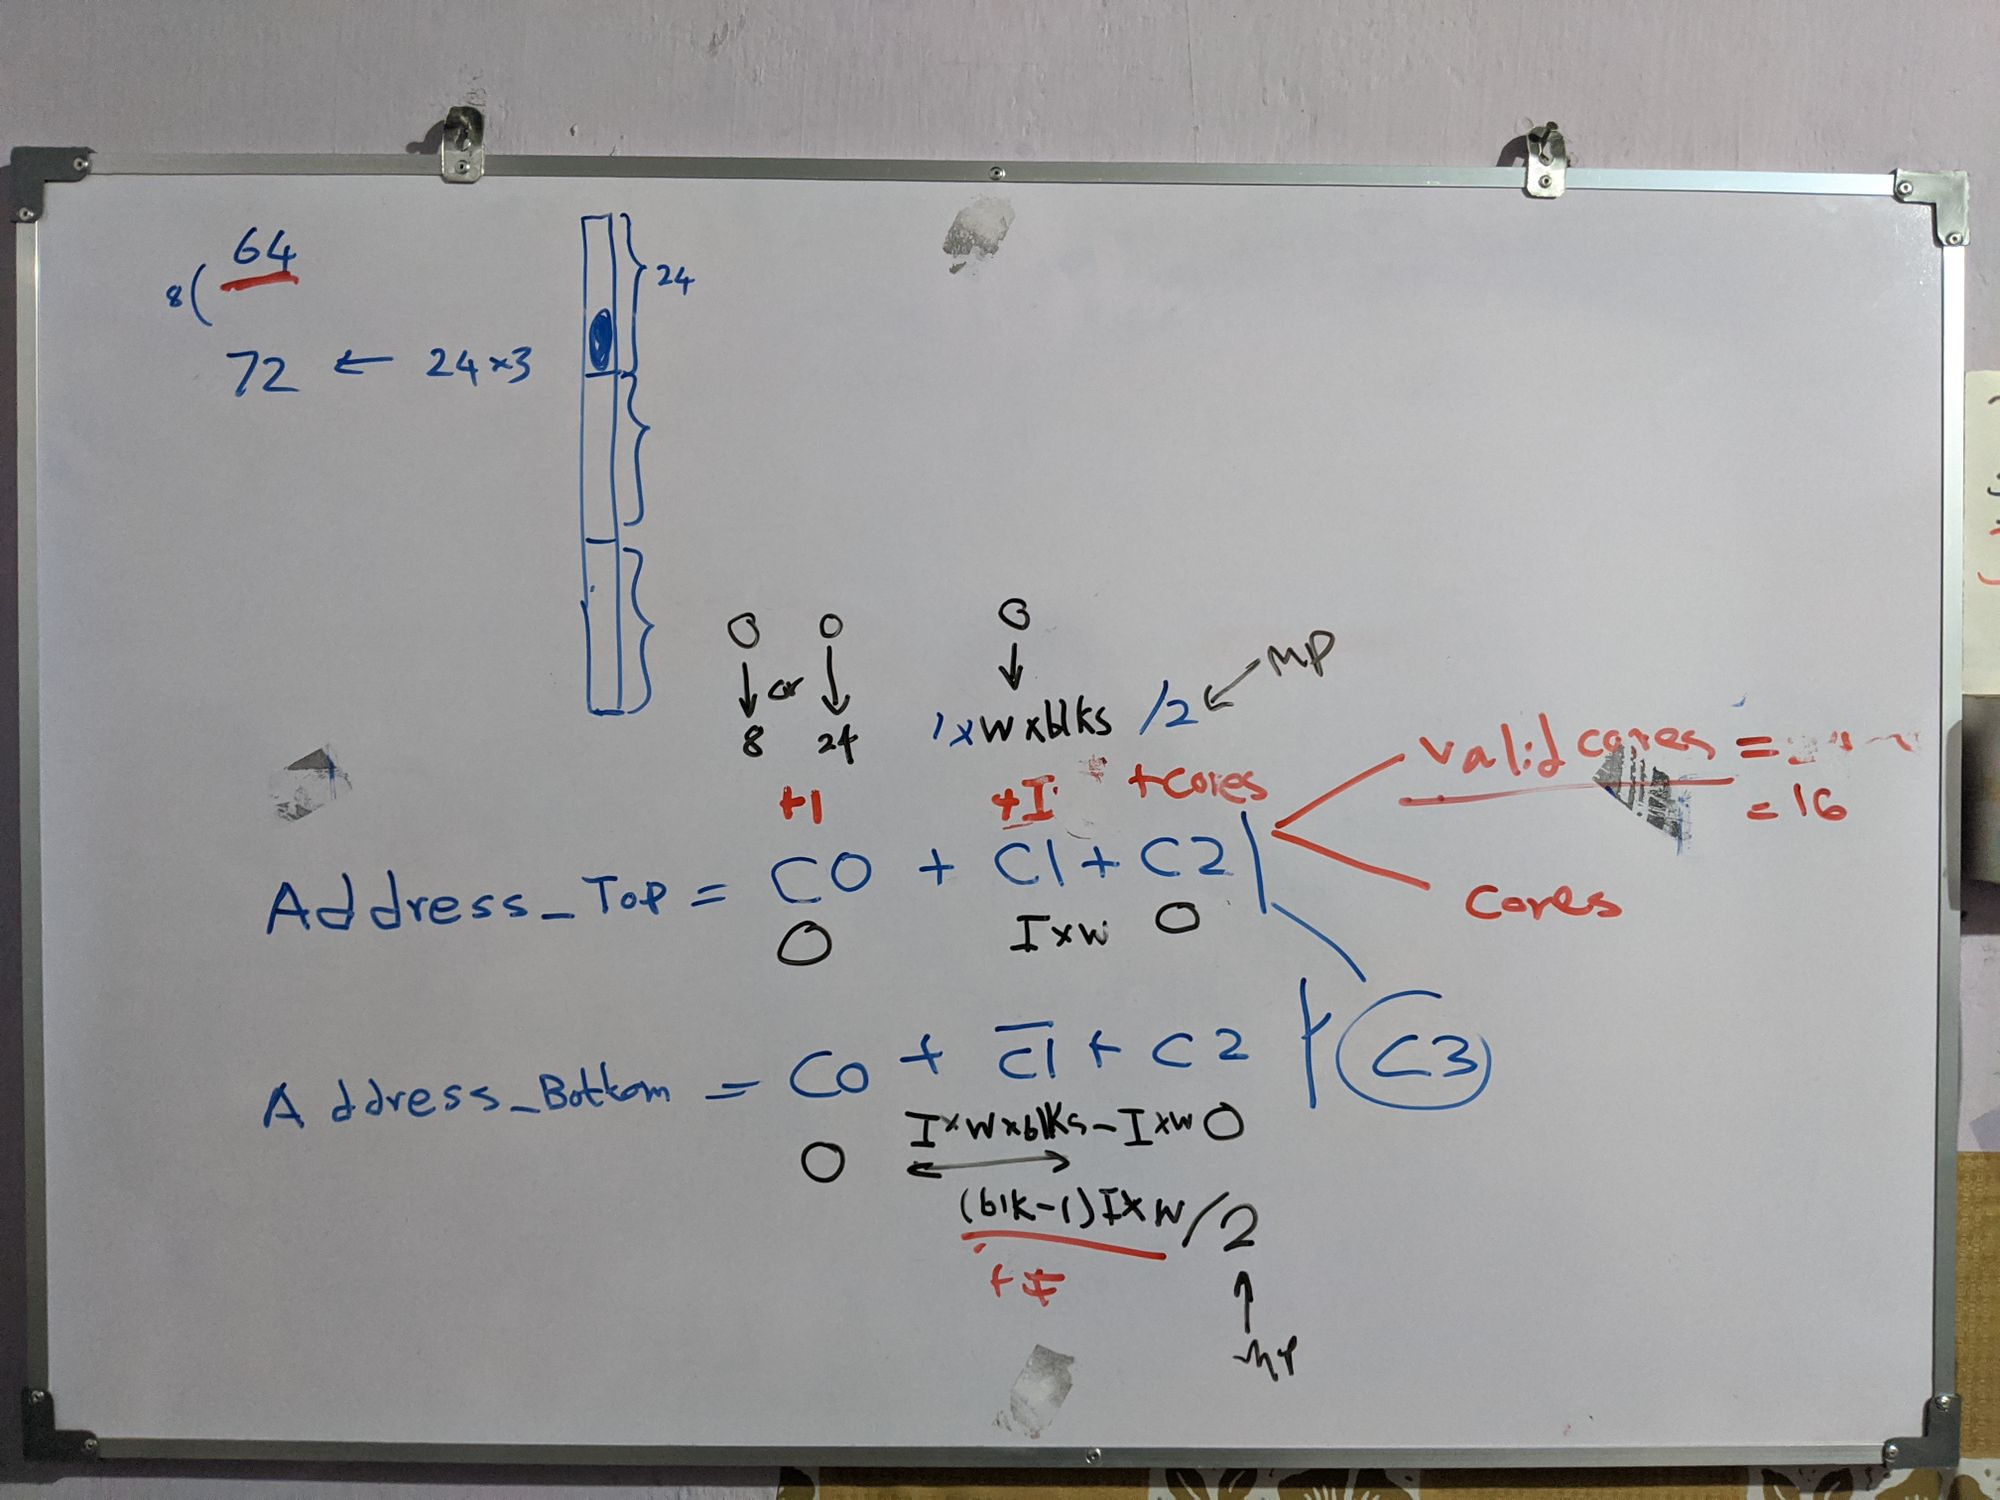 64
8(
72 ← 24×3
24
0 0 0
↓ or ↓ ↓ MP
8 24 1×W×blks /2
+1 +I +cores
valid cores =
= 16
Address_Top = C0 + C1 + C2
0 I×W 0
Cores
Address_Bottom = C0 + C̅1̅ + C2 + C3
I×W×blks-I×W 0
0
(blk-1)I×W/2
+I
↑
MP